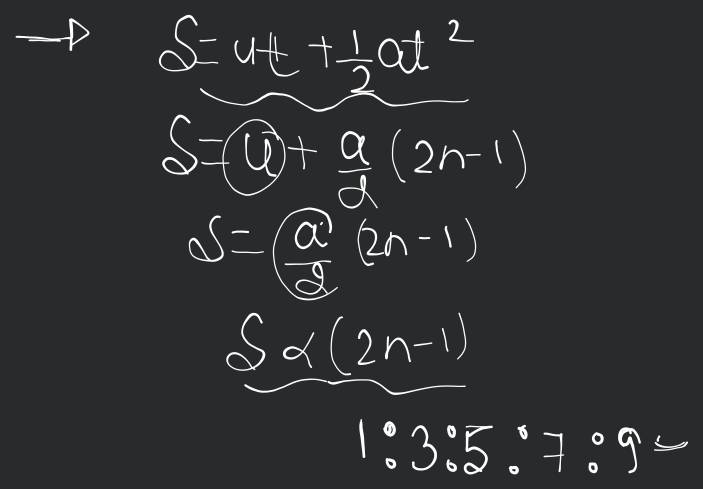 → S=ut+1/2at²
S=u+a/2(2n-1)
S=a/2(2n-1)
S∝(2n-1)
1:3:5:7:9-